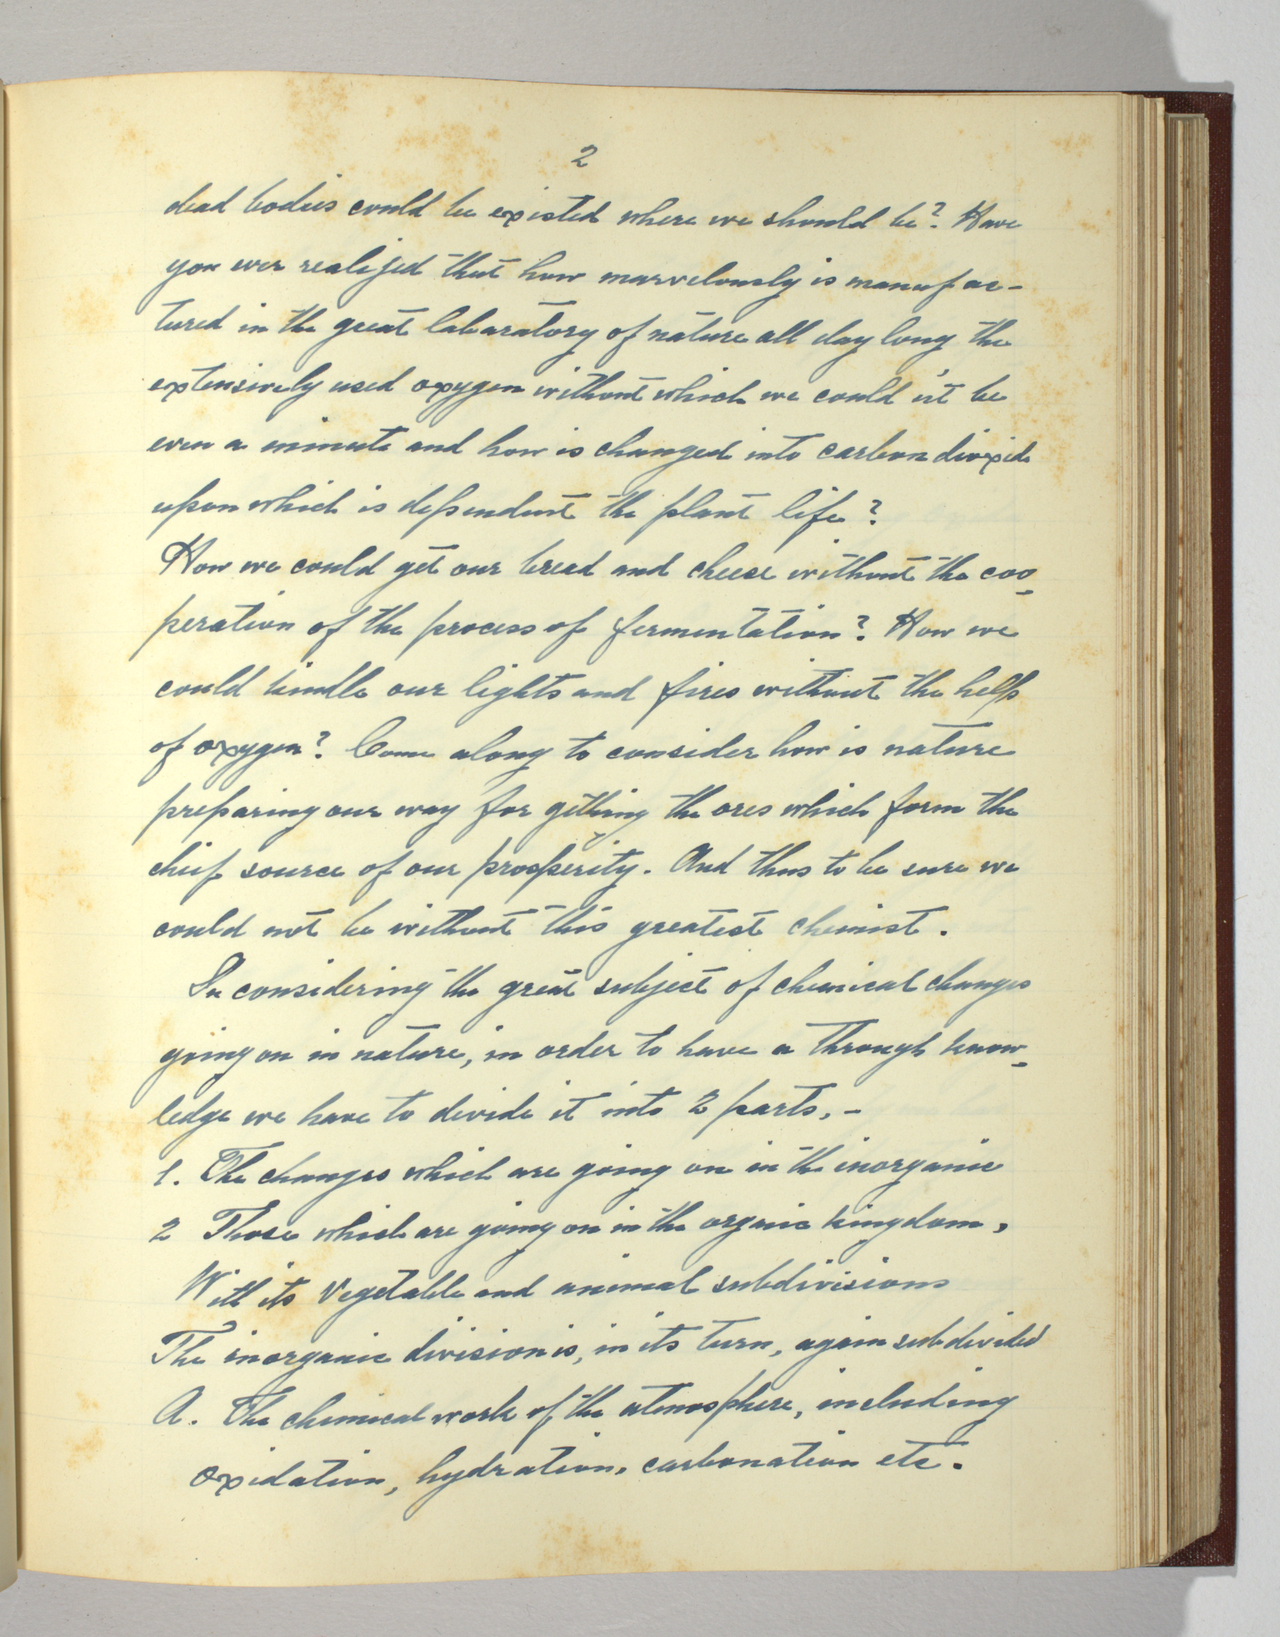 2
dead bodies could be existed where we should be? Have
you ever realized that how marvelously is manufac-
tured in the great labaratory of nature all day long the
extensively used oxygen without which we could n't be
even a minute and how is changed into carbon dioxid
upon which is dependent the plant life?
How we could get our bread and cheese without the coo-
peration of the process of fermentation? How we
could kindle our lights and fires without the help
of oxygen? Come along to consider how is nature
preparing our way for getting the ores which form the
chief source of our prosperity. And thus to be sure we
could not be without this greatest chemist.
In considering the great subject of chemical changes
going on in nature, in order to have a through know-
ledge we have to devide it into 2 parts, -
1. The changes which are going on in the inorganic
2 Those which are going on in the organic kingdom,
With its vegetable and animal subdivisions
The inorganic division is, in its turn, again subdivided
A. The chemical work of the atmosphere, including
oxidation, hydration, carbonation etc.